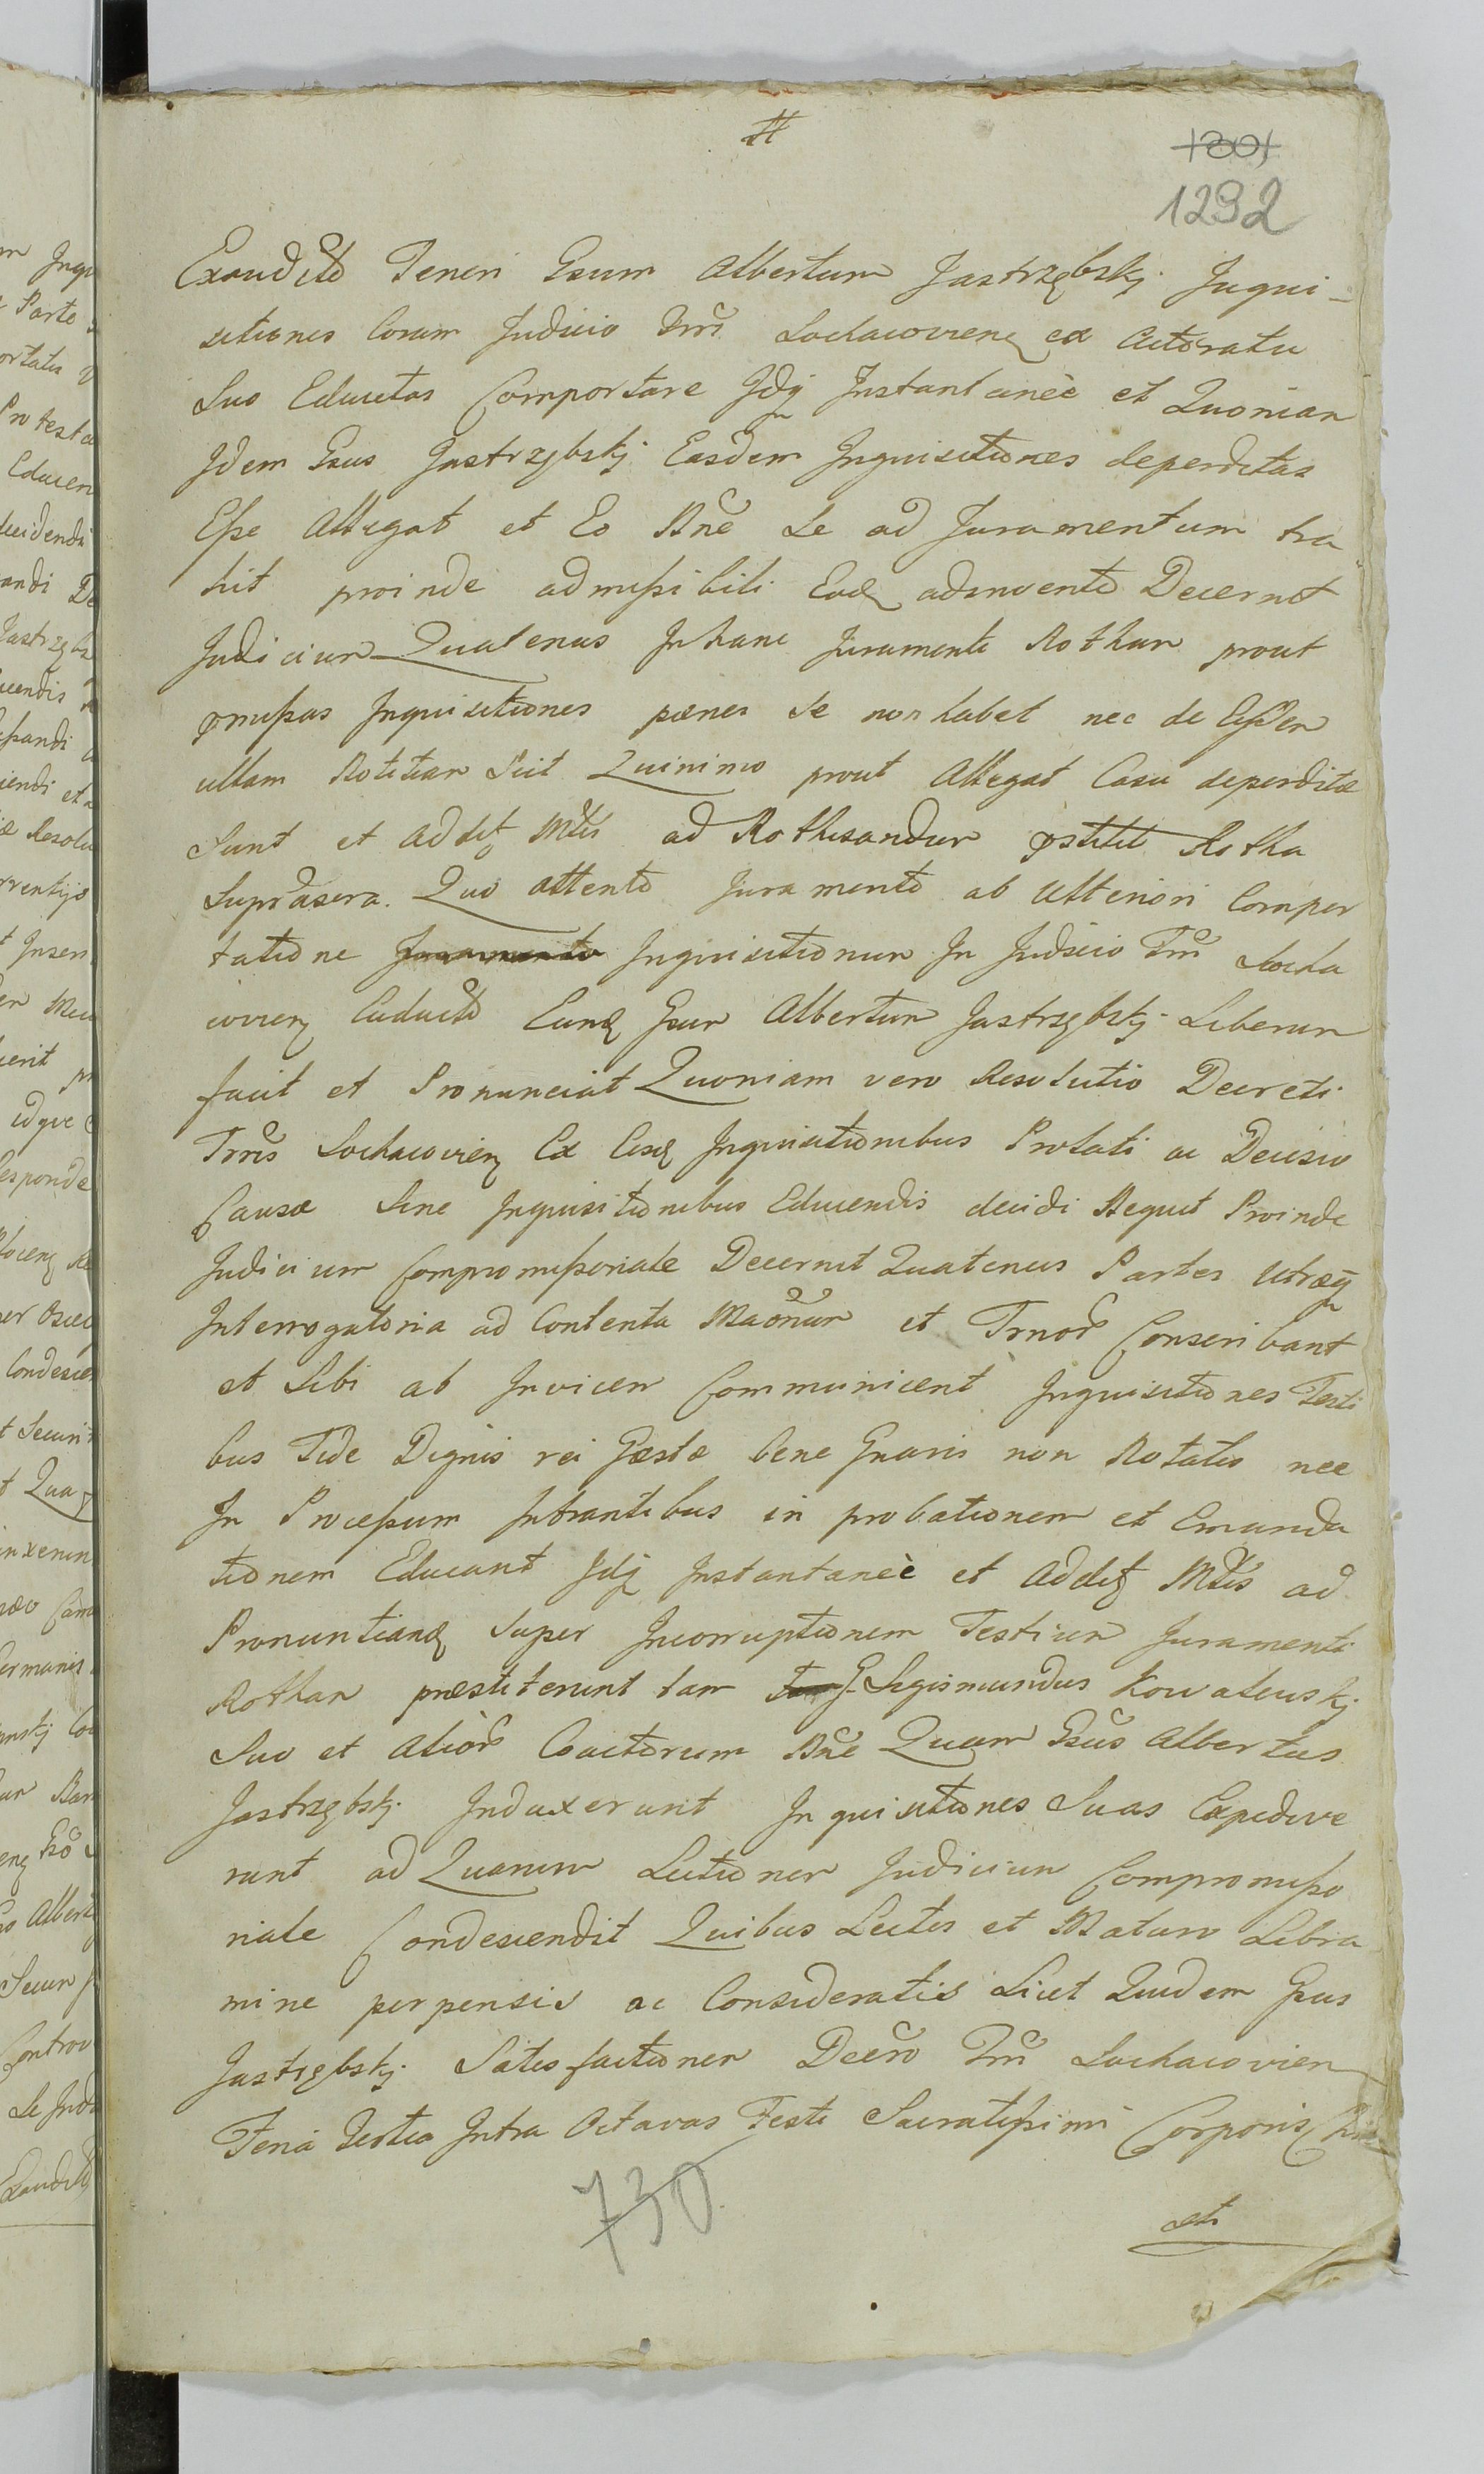 1291
1292
Exaudito Teneri Gsum Albertum Jastrzębskj Inqui-
sitiones Coram Judicio Trri Lochacovien ex Actoratu
Suo Eductas Comportare Idq Instantaneè et Quoniam
Idem Gsus Jastrzębskj Easdem Inquisitiones deperditas
Eſse Allegat et Eo Nne Se ad Juramentum tra
hit proinde admiſsibili Eodem adinvento Decernit
Judicium Quatenus In hanc Juramenti Rotham prout
pmiſsas Inquisitiones penes Se non habet nec de Eiſdem
ullam Notitiam Scit Quinimo prout Allegat Casu deperditæ
Sunt et addit Mtis ad Rothisandum pstitit Rotha
Suprascra. Quo attento Juramento ab Ulteriori Compor
tatione Inquisitionum In Judicio Trri Locha
covien Educto Eund Gsum Albertum Jastrzębskj Liberum
facit et Pronunciat Quoniam vero Resolutio Decreti
Trris Lochacovien Ex Eisd Inquisitionibus Prolati ac Decisio
Causæ Sine Inquisitionibus Educendis decidi Nequit Proinde
Judicium Compromiſsoriale Decernit Quatenus Partes Utræq
Interrogatoria ad Contenta Maonum et Trnor Conscribant
et Sibi ab Invicem Communicent Inquisitiones Testi
bus Fide Dignis rei Gestæ bene Gnaris non Notatis nec
In Proceſsum Intrantibus in probationem et Emunda
tionem Educant Idq Instantaneè et addit Mtis ad
Pronuntiand Super Incorruptionem Testium Juramenti
Rotham præstiterunt tam G. Sigismundus Kowalewskj
Suo et alior Coactorum Nne Quam Gsus Albertus
Jastrzębskj Induxerunt Inquisitiones Suas Expedive
runt ad Quarum Lectionem Judicium Compromiſso
riale Condescendit Quibus Lectis et Maturo Libra
mine perpensis ac Consideratis Licet Quidem Gsus
Jastrzębskj Satisfactionem Decro Trri Lochacovien
Feria Tertia Intra Octavas Festi Sacratiſsimi Corporis
730